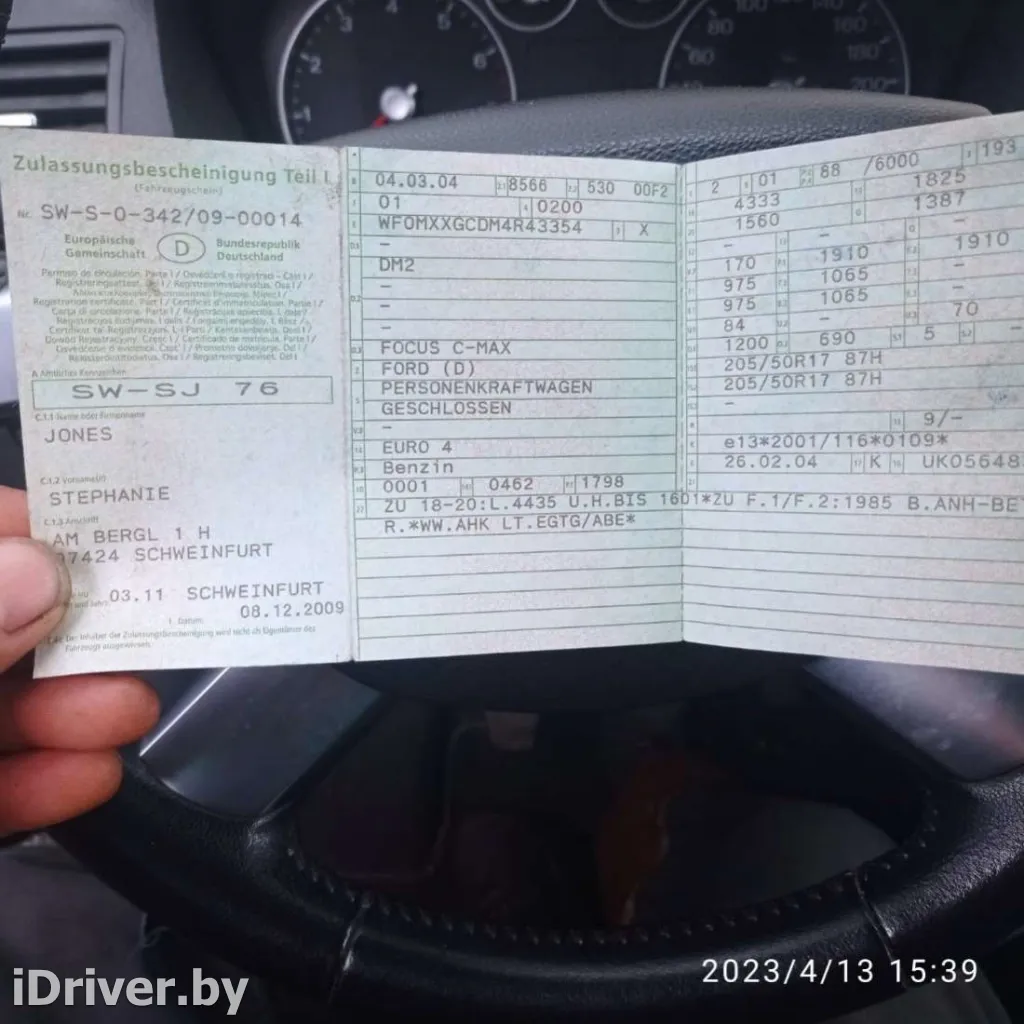 Zulassungsbescheinigung Teil I
(Fahrzeugschein)
Nr. SW-S-0-342/09-00014
Europäische Gemeinschaft
D
Bundesrepublik Deutschland
A Amtliches Kennzeichen
SW-SJ 76
C.1.1 Name oder Firmenname
JONES
C.1.2 Vorname(n)
STEPHANIE
C.1.3 Anschrift
AM BERGL 1 H
7424 SCHWEINFURT
03.11 SCHWEINFURT
Datum: 08.12.2009
Der Inhaber der Zulassungsbescheinigung wird nicht als Eigentümer des
Fahrzeugs ausgewiesen.
04.03.04 8566 530 00F2
01 0200
WF0MXXGCDM4R43354 X
–
DM2
–
–
–
FOCUS C-MAX
FORD (D)
PERSONENKRAFTWAGEN
GESCHLOSSEN
–
EURO 4
Benzin
0001 0462 1798
ZU 18-20:L.4435 U.H.BIS 1601*ZU F.1/F.2:1985 B.ANH-BE
R.*WW.AHK LT.EGTG/ABE*
2 01 88 /6000 193
4333 1825
1560 1387
– – –
170 1910 1910
975 1065 –
975 1065 –
84 – 70
1200 690 5 –
205/50R17 87H
205/50R17 87H
–
9/–
e13*2001/116*0109*
26.02.04 K UK05648
1 2 3 4 5 6
60 80 100 140 160 180 200
2023/4/13 15:39
iDriver.by